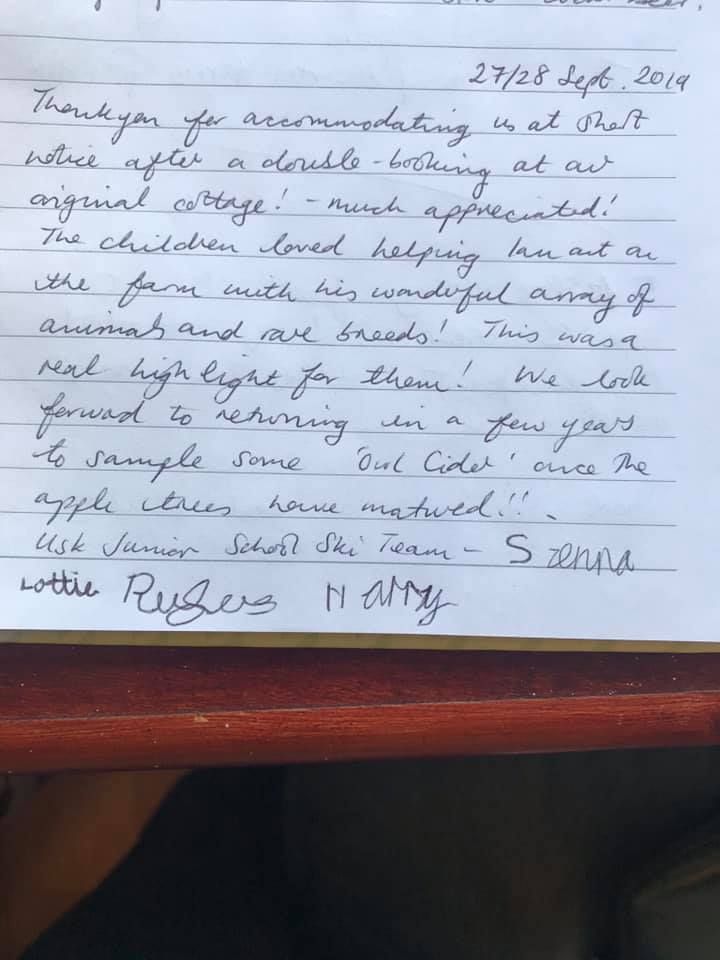 27/28 Sept. 2019
Thankyou for accommodating us at short
notice after a double-booking at our
original cottage! - much appreciated!
The children loved helping Ian out on
the farm with his wonderful array of
animals and rare breeds! This was a
real highlight for them! We look
forward to returning in a few years
to sample some 'Owl Cider' once the
apple trees have matured!!
Usk Junior School Ski Team - Sienna
Lottie Rufus Harry